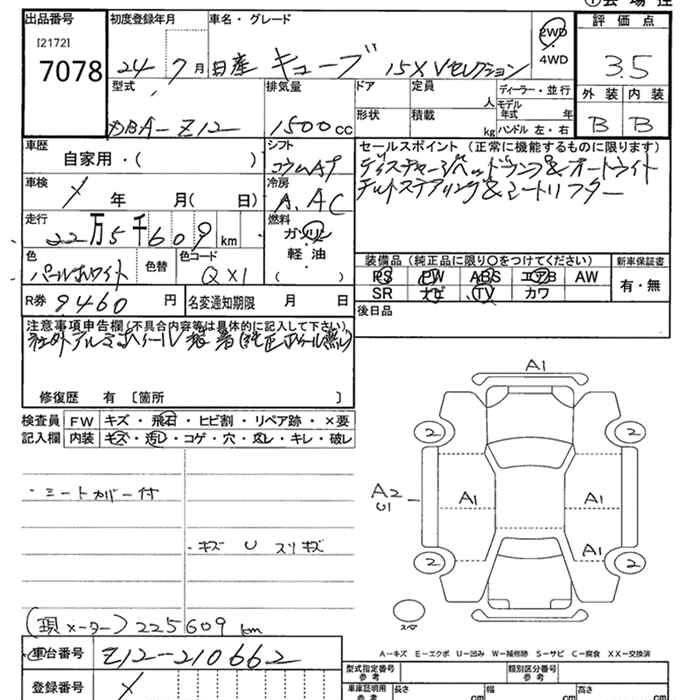 ①会場控
出品番号
初度登録年月
車名・グレード
評価点
[2172]
7078
24年7月
日産 キューブ 15X Vセレクション
2WD
・
4WD
3.5
型式
排気量
ドア
定員
人
ディーラー・並行
外装 内装
DBA-Z12
1500cc
形状
積載
kg
モデル年式
年
ハンドル 左・右
B B
車歴
自家用・( )
シフト
コラムAT
セールスポイント (正常に機能するものに限ります)
ディスチャージヘッドランプ&オートライト
車検
年 月( 日)
冷房
A.AC
走行
22万5千609km
燃料
ガソリン
・
軽油
( )
色
パールホワイト
色替
色コード
QX1
装備品 (純正品に限り○をつけてください)
新車保証書
PS PW ABS エアB AW
SR ナビ TV カワ
有・無
R券 9460円
名変通知期限 月 日
後日品
注意事項申告欄(不具合内容等は具体的に記入して下さい)
社外アルミホイール装着(純正ホイール無し)
修復歴 有 〔箇所 〕
検査員
記入欄
FW キズ・飛石・ヒビ割・リペア跡・×要
内装 キズ・汚レ・コゲ・穴・スレ・キレ・破レ
・シートカバー付
・キズ U スリキズ
A1
2 2
A2
U1
A1 A1 A1
A1
2 2
スペ
(現メーター) 225609km
A-キズ E-エクボ U-凹み W-補修跡 S-サビ C-腐食 XX-交換済
車台番号
Z12-210662
登録番号
型式指定番号
参考
類別区分番号
参考
車庫証明用
参考
長さ cm
幅 cm
高さ cm